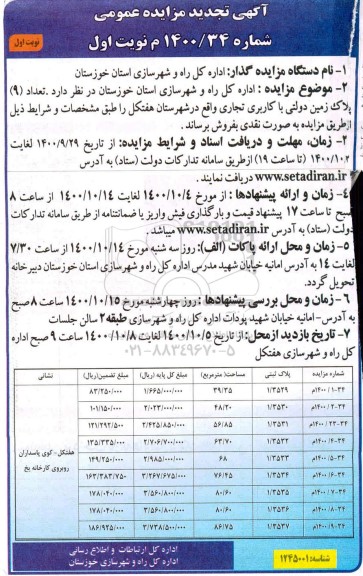 آگهی تجدید مزایده عمومی
شماره ۱۴۰۰/۳۴ م نوبت اول
نوبت اول
۱- نام دستگاه مزایده گذار: اداره کل راه و شهرسازی استان خوزستان
۲- موضوع مزایده : اداره کل راه و شهرسازی استان خوزستان در نظر دارد .تعداد (۹)
پلاک زمین دولتی با کاربری تجاری واقع درشهرستان هفتکل را طبق مشخصات و شرایط ذیل
ازطریق مزایده به صورت نقدی بفروش برساند .
۳- زمان، مهلت و دریافت اسناد و شرایط مزایده: از تاریخ ۱۴۰۰/۹/۲۹ لغایت
۱۴۰۰/۱۰/۲ (تا ساعت ۱۹) ازطریق سامانه تدارکات دولت (ستاد) به آدرس
www.setadiran.ir دریافت نمایند .
۴- زمان و ارائه پیشنهادها : از مورخ ۱۴۰۰/۱۰/۴ لغایت ۱۴۰۰/۱۰/۱۴ از ساعت ۸
صبح تا ساعت ۱۷ پیشنهاد قیمت و بارگذاری فیش واریز یا ضمانتنامه از طریق سامانه تدارکات
دولت (ستاد) به آدرس www.setadiran.ir میباشد .
۵- زمان و محل ارائه پاکات (الف): روز سه شنبه مورخ ۱۴۰۰/۱۰/۱۴ از ساعت ۷/۳۰
لغایت ۱۴ به آدرس امانیه خیابان شهید مدرس اداره کل راه و شهرسازی استان خوزستان دبیرخانه
تحویل گردد.
۶- زمان و محل بررسی پیشنهادها : روز چهارشنبه مورخ ۱۴۰۰/۱۰/۱۵ ساعت ۸ صبح
به آدرس- امانیه خیابان شهید پودات اداره کل راه و شهرسازی طبقه ۲ سالن جلسات
۷- تاریخ بازدید ازمحل: از تاریخ ۱۴۰۰/۱۰/۵ لغایت ۱۴۰۰/۱۰/۸ ساعت ۹ صبح اداره
کل راه و شهرسازی هفتکل
۰۲۱-۸۸۳۴۹۶۷۰-۵
شماره مزایده پلاک ثبتی مساحت( مترمربع) مبلغ کل پایه (ریال) مبلغ تضمین(ریال) نشانی
۱۴۰۰/۱-۳۴م ۱/۳۵۲۹ ۳۹/۳۵ ۱/۶۶۵/۰۰۰/۰۰۰ ۸۳/۲۵۰/۰۰۰
۱۴۰۰/۲-۳۴م ۱/۳۵۳۰ ۴۸/۲۰ ۲/۰۲۳/۰۰۰/۰۰۰ ۱۰۱/۱۵۰/۰۰۰
۱۴۰۰/۳-۳۴م ۱/۳۵۳۱ ۵۶/۸۵ ۲/۴۲۵/۸۵۰/۰۰۰ ۱۲۱/۲۹۲/۵۰۰
۱۴۰۰/۴-۳۴م ۱/۳۵۳۲ ۶۳/۷۰ ۲/۷۰۶/۷۰۰/۰۰۰ ۱۳۵/۳۳۵/۰۰۰
۱۴۰۰/۵-۳۴م ۱/۳۵۳۳ ۶۸ ۲/۹۸۵/۰۰۰/۰۰۰ ۱۴۹/۲۵۰/۰۰۰
۱۴۰۰/۶-۳۴م ۱/۳۵۳۴ ۷۶/۴۵ ۳/۲۶۷/۶۷۵/۰۰۰ ۱۶۳/۳۸۳/۷۵۰
۱۴۰۰/۷-۳۴م ۱/۳۵۳۵ ۸۰/۶۰ ۳/۵۶۰/۸۰۰/۰۰۰ ۱۷۸/۰۴۰/۰۰۰
۱۴۰۰/۸-۳۴م ۱/۳۵۳۶ ۸۰/۶۰ ۳/۵۶۰/۸۰۰/۰۰۰ ۱۷۸/۰۴۰/۰۰۰
۱۴۰۰/۹-۳۴م ۱/۳۵۳۷ ۸۶/۷۵ ۳/۷۳۸/۵۰۰/۰۰۰ ۱۸۶/۹۲۵/۰۰۰
هفتکل- کوی پاسداران
روبروی کارخانه یخ
شناسه: ۱۲۴۵۰۰۱
اداره کل ارتباطات و اطلاع رسانی
اداره کل راه و شهرسازی خوزستان